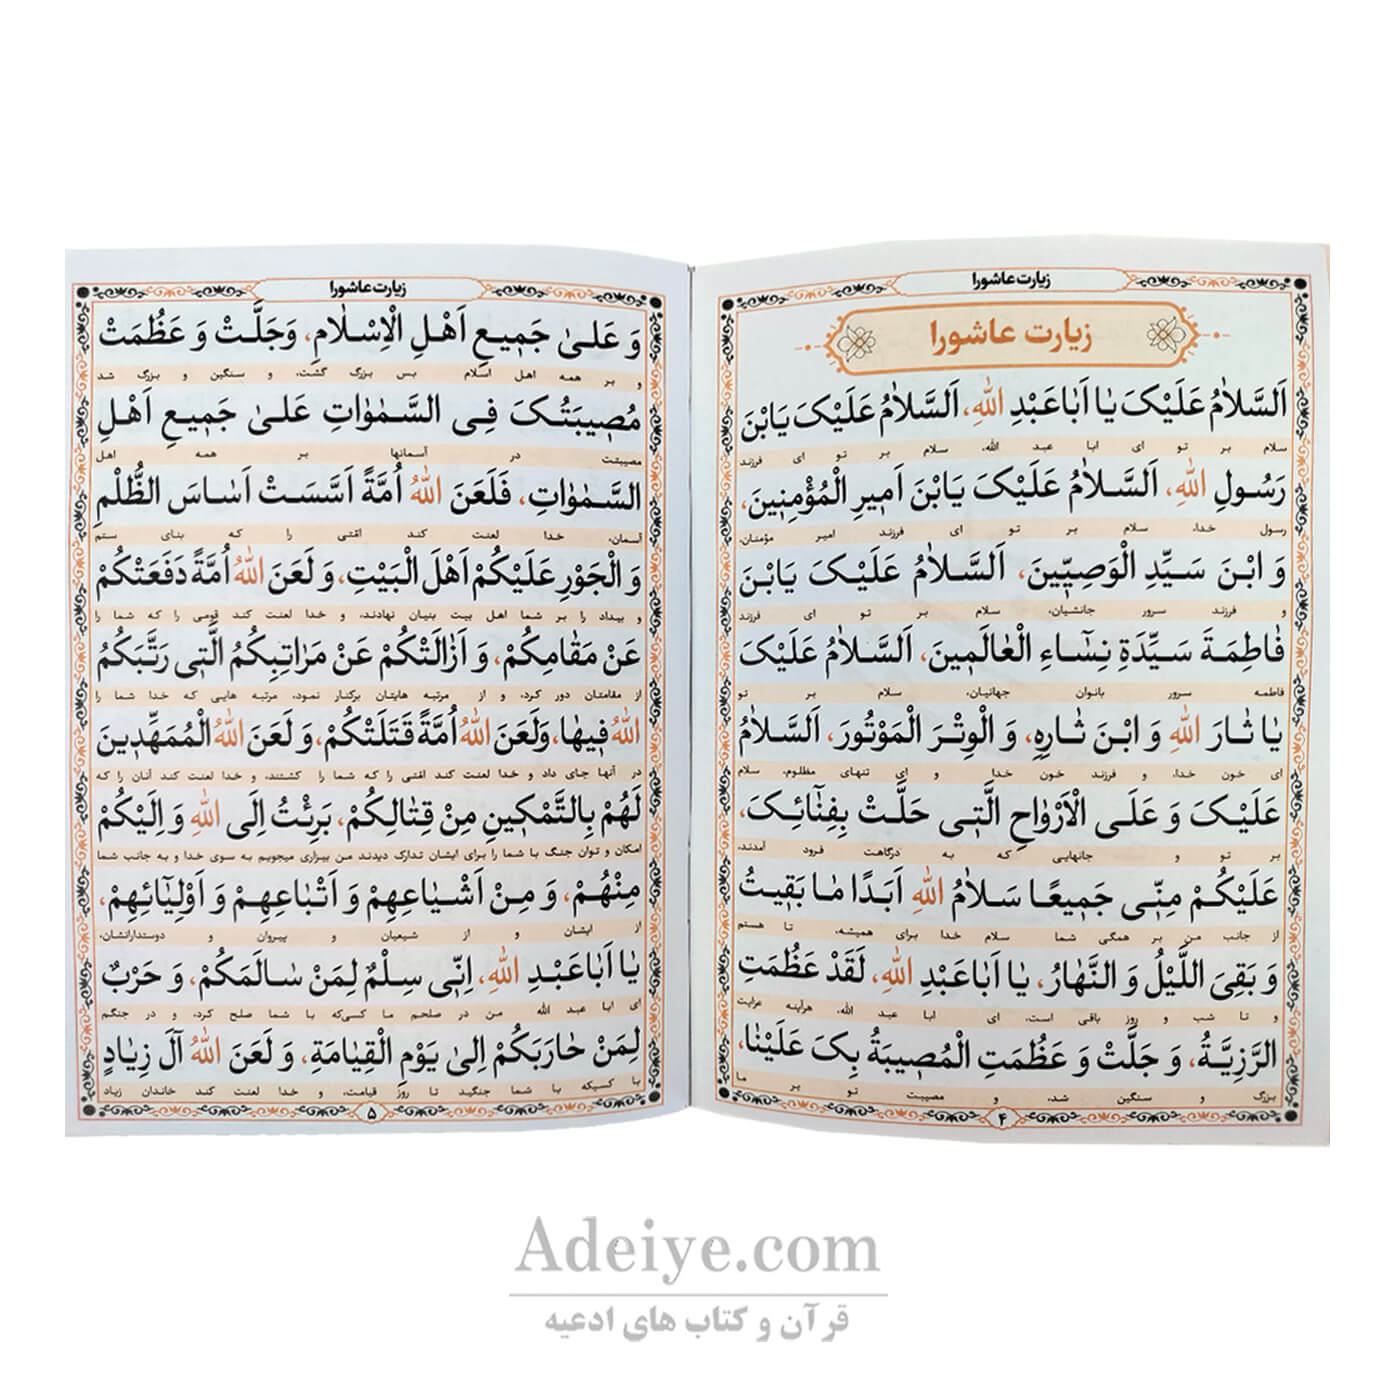 زیارت عاشورا
زیارت عاشورا
اَلسَّلاٰمُ عَلَیْکَ یٰا اَبٰاعَبْدِ اللهِ، اَلسَّلاٰمُ عَلَیْکَ یَابْنَ
سلام بر تو ای ابا عبد الله، سلام بر تو ای فرزند
رَسُولِ اللهِ، اَلسَّلاٰمُ عَلَیْکَ یَابْنَ اَمیرِ الْمُؤْمِنینَ،
رسول خدا، سلام بر تو ای فرزند امیر مؤمنان،
وَ ابْنَ سَیِّدِ الْوَصِیّینَ، اَلسَّلاٰمُ عَلَیْکَ یَابْنَ
و فرزند سرور جانشیان، سلام بر تو ای فرزند
فٰاطِمَةَ سَیِّدَةِ نِسٰاءِ الْعٰالَمینَ، اَلسَّلاٰمُ عَلَیْکَ
فاطمه سرور بانوان جهانیان، سلام بر تو
یٰا ثٰارَ اللهِ وَ ابْنَ ثٰارِهِ، وَ الْوِتْرَ الْمَوْتُورَ، اَلسَّلاٰمُ
ای خون خدا، و فرزند خون خدا و ای تنهای مظلوم، سلام
عَلَیْکَ وَ عَلَی الْاَرْوٰاحِ الَّتی حَلَّتْ بِفِنٰائِکَ،
بر تو و جانهایی که به درگاهت فرود آمدند،
عَلَیْکُمْ مِنّی جَمیعًا سَلاٰمُ اللهِ اَبَدًا مٰا بَقیتُ
از جانب من بر همگی شما سلام خدا برای همیشه، تا هستم
وَ بَقِیَ اللَّیْلُ وَ النَّهٰارُ، یٰا اَبٰاعَبْدِ اللهِ، لَقَدْ عَظُمَتِ
و تا شب و روز باقی است. ای ابا عبد الله، هرآینه عزایت
الرَّزِیَّةُ، وَ جَلَّتْ وَ عَظُمَتِ الْمُصیبَةُ بِکَ عَلَیْنٰا،
بزرگ و سنگین شد، و مصیبت تو بر ما
۴
زیارت عاشورا
وَ عَلیٰ جَمیعِ اَهْلِ الْاِسْلاٰمِ، وَجَلَّتْ وَ عَظُمَتْ
و بر همه اهل اسلام بس بزرگ گشت، و سنگین و بزرگ شد
مُصیبَتُکَ فِی السَّمٰوٰاتِ عَلیٰ جَمیعِ اَهْلِ
مصیبتت در آسمانها بر همه اهل
السَّمٰوٰاتِ، فَلَعَنَ اللهُ اُمَّةً اَسَّسَتْ اَسٰاسَ الظُّلْمِ
آسمان، خدا لعنت کند امّتی را که بنای ستم
وَ الْجَوْرِ عَلَیْکُمْ اَهْلَ الْبَیْتِ، وَ لَعَنَ اللهُ اُمَّةً دَفَعَتْکُمْ
و بیداد را بر شما اهل بیت بنیان نهادند، و خدا لعنت کند قومی را که شما را
عَنْ مَقٰامِکُمْ، وَ اَزٰالَتْکُمْ عَنْ مَرٰاتِبِکُمُ الَّتی رَتَّبَکُمُ
از مقامتان دور کرد، و از مرتبه هایتان برکنار نمود، مرتبه هایی که خدا شما را
اللهُ فیهٰا، وَلَعَنَ اللهُ اُمَّةً قَتَلَتْکُمْ، وَ لَعَنَ اللهُ الْمُمَهِّدینَ
در آنها جای داد و خدا لعنت کند امّتی را که شما را کشتند، و خدا لعنت کند آنان را که
لَهُمْ بِالتَّمْکینِ مِنْ قِتٰالِکُمْ، بَرِئْتُ اِلَی اللهِ وَ اِلَیْکُمْ
امکان و توان جنگ با شما را برای ایشان تدارک دیدند من بیزاری میجویم به سوی خدا و به جانب شما
مِنْهُمْ، وَ مِنْ اَشْیٰاعِهِمْ وَ اَتْبٰاعِهِمْ وَ اَوْلِیٰائِهِمْ،
از ایشان و از شیعیان و پیروان و دوستدارانشان،
یٰا اَبٰاعَبْدِ اللهِ، اِنّی سِلْمٌ لِمَنْ سٰالَمَکُمْ، وَ حَرْبٌ
ای ابا عبد الله من در صلحم ما کسی‌که با شما صلح کرد، و در جنگم
لِمَنْ حٰارَبَکُمْ اِلیٰ یَوْمِ الْقِیٰامَةِ، وَ لَعَنَ اللهُ آلَ زِیٰادٍ
با کسیکه با شما جنگید تا روز قیامت، و خدا لعنت کند خاندان زیاد
۵
Adeiye.com
قرآن و کتاب های ادعیه